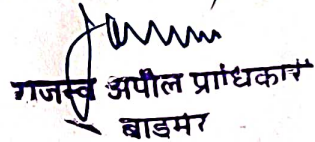 राजस्व अपील प्राधिकार
बाडमेर